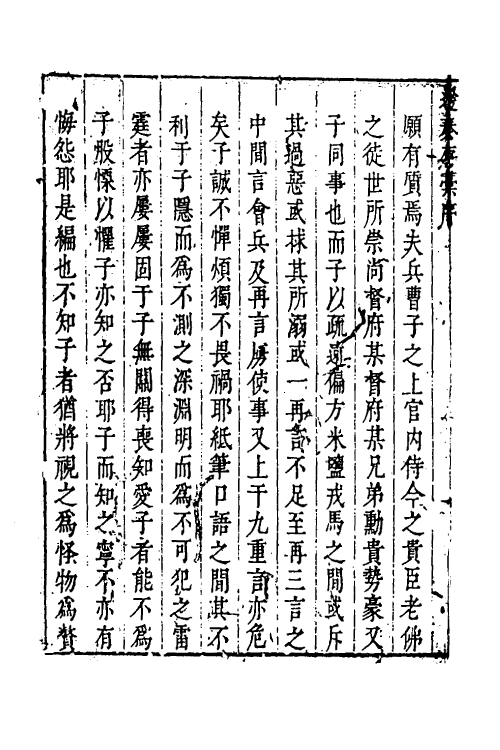 願有質焉夫兵曹子之上官内侍今之貴臣老佛
之徒世所崇尚督府某督府某兄弟勳貴勢豪又
子同事也而子以疏遠偏方米鹽戎馬之間或斥
其過惡或拯其所溺或一再言不足至再三言之
中間言會兵及再言虜使事又上干九重言亦危
矣子誠不憚煩獨不畏禍耶紙筆口語之間其不
利于子隱而為不測之深淵明而為不可犯之雷
霆者亦屢屢固于子無關得喪知愛子者能不為
子股慄以懼子亦知之否耶子而知之寧不亦有
悔怨耶是編也不知子者猶將視之為怪物為贅